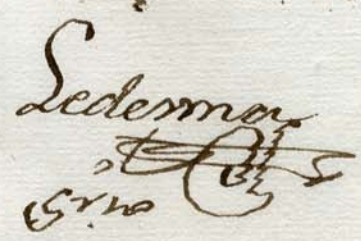 Ledesma
Srno